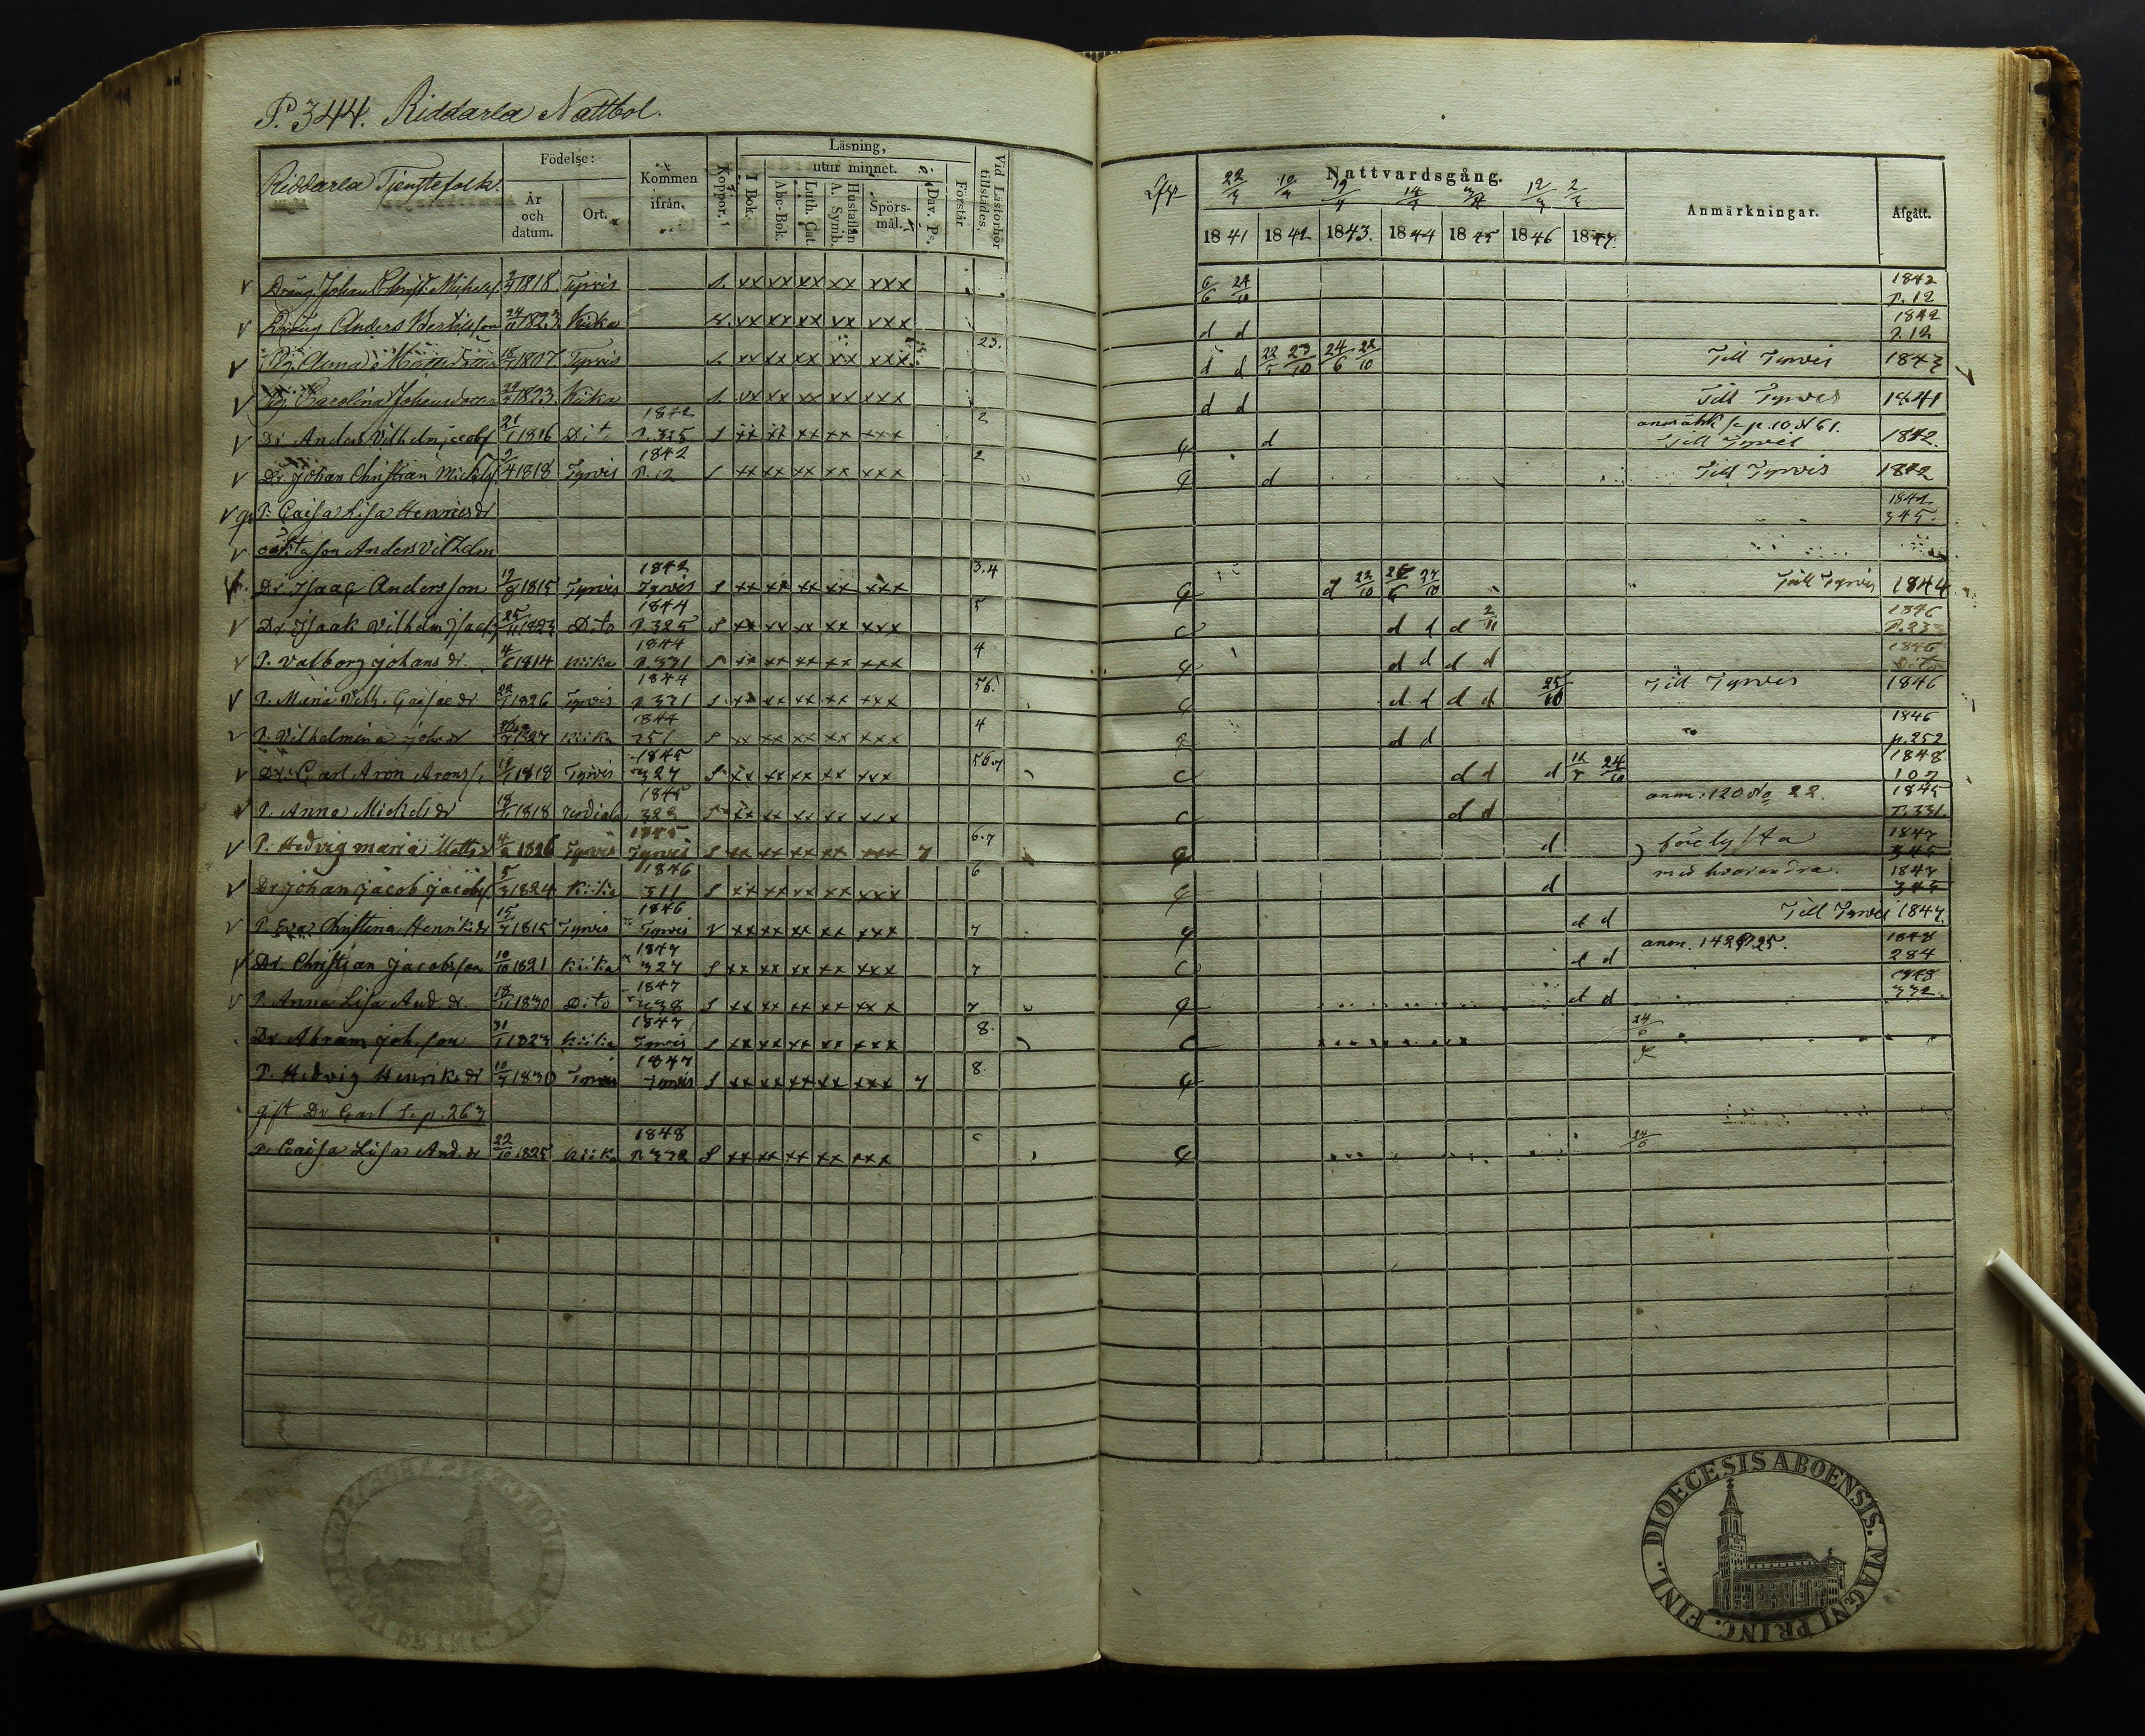 P. 344. Riddarla Nattbol.
Riddarla Tjenstefolk.
Födelse:
År och datum.
Ort.
Kommen ifrån.
Koppor.
Läsning,
I Bok.
utur minnet.
Abc-Bok.
Luth. Cat.
A. Symb.
Hustaflan
Spörs-mål.
Dav. Ps.
Förstår
Vid Läsförhör tillstädes.
Nattvardsgång.
1841 1842 1843. 1844 1845 1846 1847.
Anmärkningar.
Afgått.
Dräng Johan Christ. Michelss 2/4 1818. Tyrvis S. xx xx xx xx xxx 6/6 24/10 1842 P. 12
Dräng Anders Bertilsson 24/11 1823. Kiika xx xx xx xx xxx d d 1842 P. 12
Pig. Anna Mattsdotter 1807. Tyrvis S. xx xx xx xx xxx 23. d d 22/5 23/10 24/6 22/10 Till Tyrvis 1843
Pig. Carolina Johansdotter 1823. Kiika S. xx xx xx xx xxx d d Till Tyrvis 1841
Dr Anders Vilhelm Jacobss 21/1 1816 Dito 1842 P. 325 S xx xx xx xx xxx 2 d anmärk se p. 10 N 61. Till Tyrvis 1842.
Dr. Johan Christian Mickelss 2/4 1818 Tyrvis 1842 P. 12 S xx xx xx xx xxx 2 d Till Tyrvis 1842
P. Caisa Lisa Henricsdr 1842 345.
oäkta son Anders Vilhelm
Dr. Isaac Andersson 1815 Tyrvis 1842 Tyrvis S xx xx xx xx xxx 3.4 d 22/10 26/6 27/10 Till Tyrvis 1844
Dr Isaak Vilhelm Isacss 25/11 1823 Dito 1844 P. 325 S xx xx xx xx xxx 5 d d d 2/11 1846 P. 23
P. Valborg Johansdr. 4/6 1814 Kiika 1844 P. 331 S xx xx xx xx xxx 4 d d d d 1846 Dito
P. Maria Vilh. Caisaedr 1826 Tyrvis 1844 P. 331 S xx xx xx xx xxx 56. d d d d 25/10 Till Tyrvis 1846
P. Vilhelmina Joh.dr 1827 Kiika 1844 251 S xx xx xx xx xxx 4 d d 1846 p. 252
Dr. Carl Aron Aronss. 1818 Tyrvis 1845 327 S xx xx xx xx xxx 56.7 d d d 24/10 1848 107
P. Anna Michelsdr 1818 1845 S xx xx xx xx xxx d d anm. 120 No 22. 1845 P. 331.
P. Hedvig Maria Mattsdr 1826 Tyrvis 1845 Tyrvis S xx xx xx xx xxx 7 6.7 d förlysta 1847 345
Dr Johan Jacob Jacobss 5/3 1824 Kiika 1846 311 S xx xx xx xx xxx 6 d med hvarandra. 1847 345
P. Eva Christina Henriksdr 1815 Tyrvis 1846 Tyrvis V xx xx xx xx xxx 7 d d Till Tyrvis 1847.
Dr. Christian Jacobsson 10/10 1821 Kiika 1847 327 S xx xx xx xx xxx 7 d d anm. 142 25. 1848 284
P. Anna Lisa And.dr. 18/11 1830 Dito 1847 S xx xx xx xx xxx 7 d d 1848 332.
Dr. Abram Joh.son 31/1 1823 Kiika 1847 Tyrvis S xx xx xx xx xxx 8. 24/6
P. Hedvig Henriksdr 1830 Tyrvis 1847 Tyrvis S xx xx xx xx xxx 7 8.
gift Dr Carl Se p. 263
P. Caisa Lisa And.dr 22/10 1825 Kiika 1848 P. 332 S xx xx xx xx xxx 24/6
DIOECESIS ABOENSIS. MAGNI PRINC. FINL.